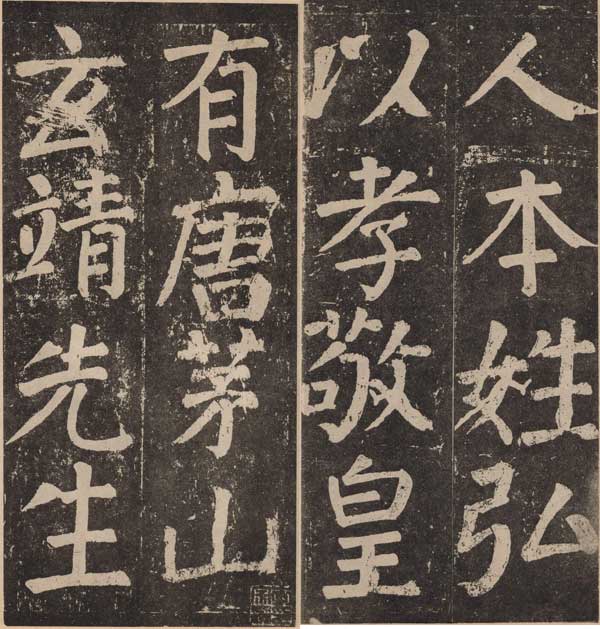 有唐茅山
玄靖先生
人本姓弘
以孝敬皇